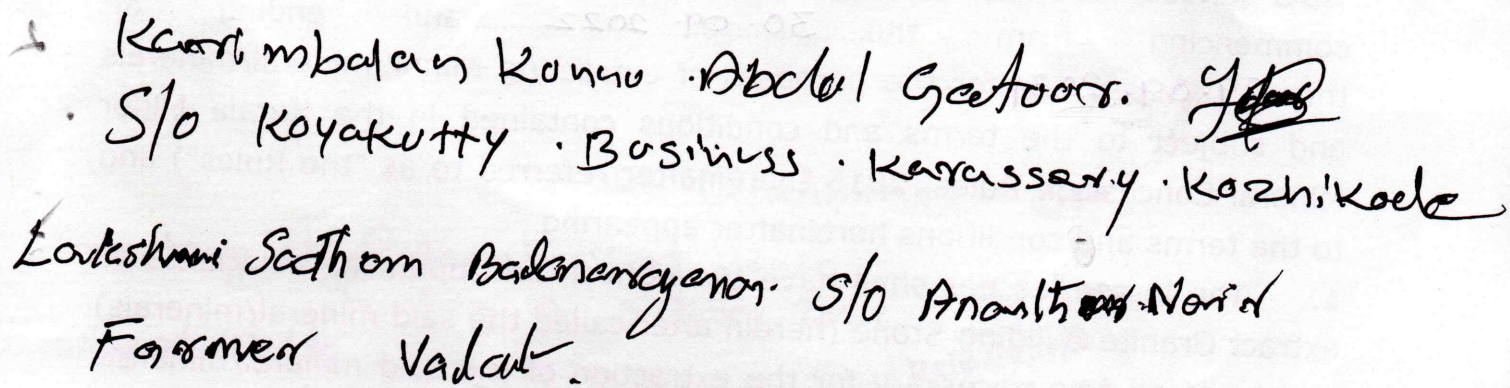 Karimbalan Konnu . Abdul Gafoor.
S/o Koyakutty . Business . Karassery . Kozhikode
Lakshmi Sadhom Badanarayanan. S/o Ananthan Nair
Farmer Vadcut.